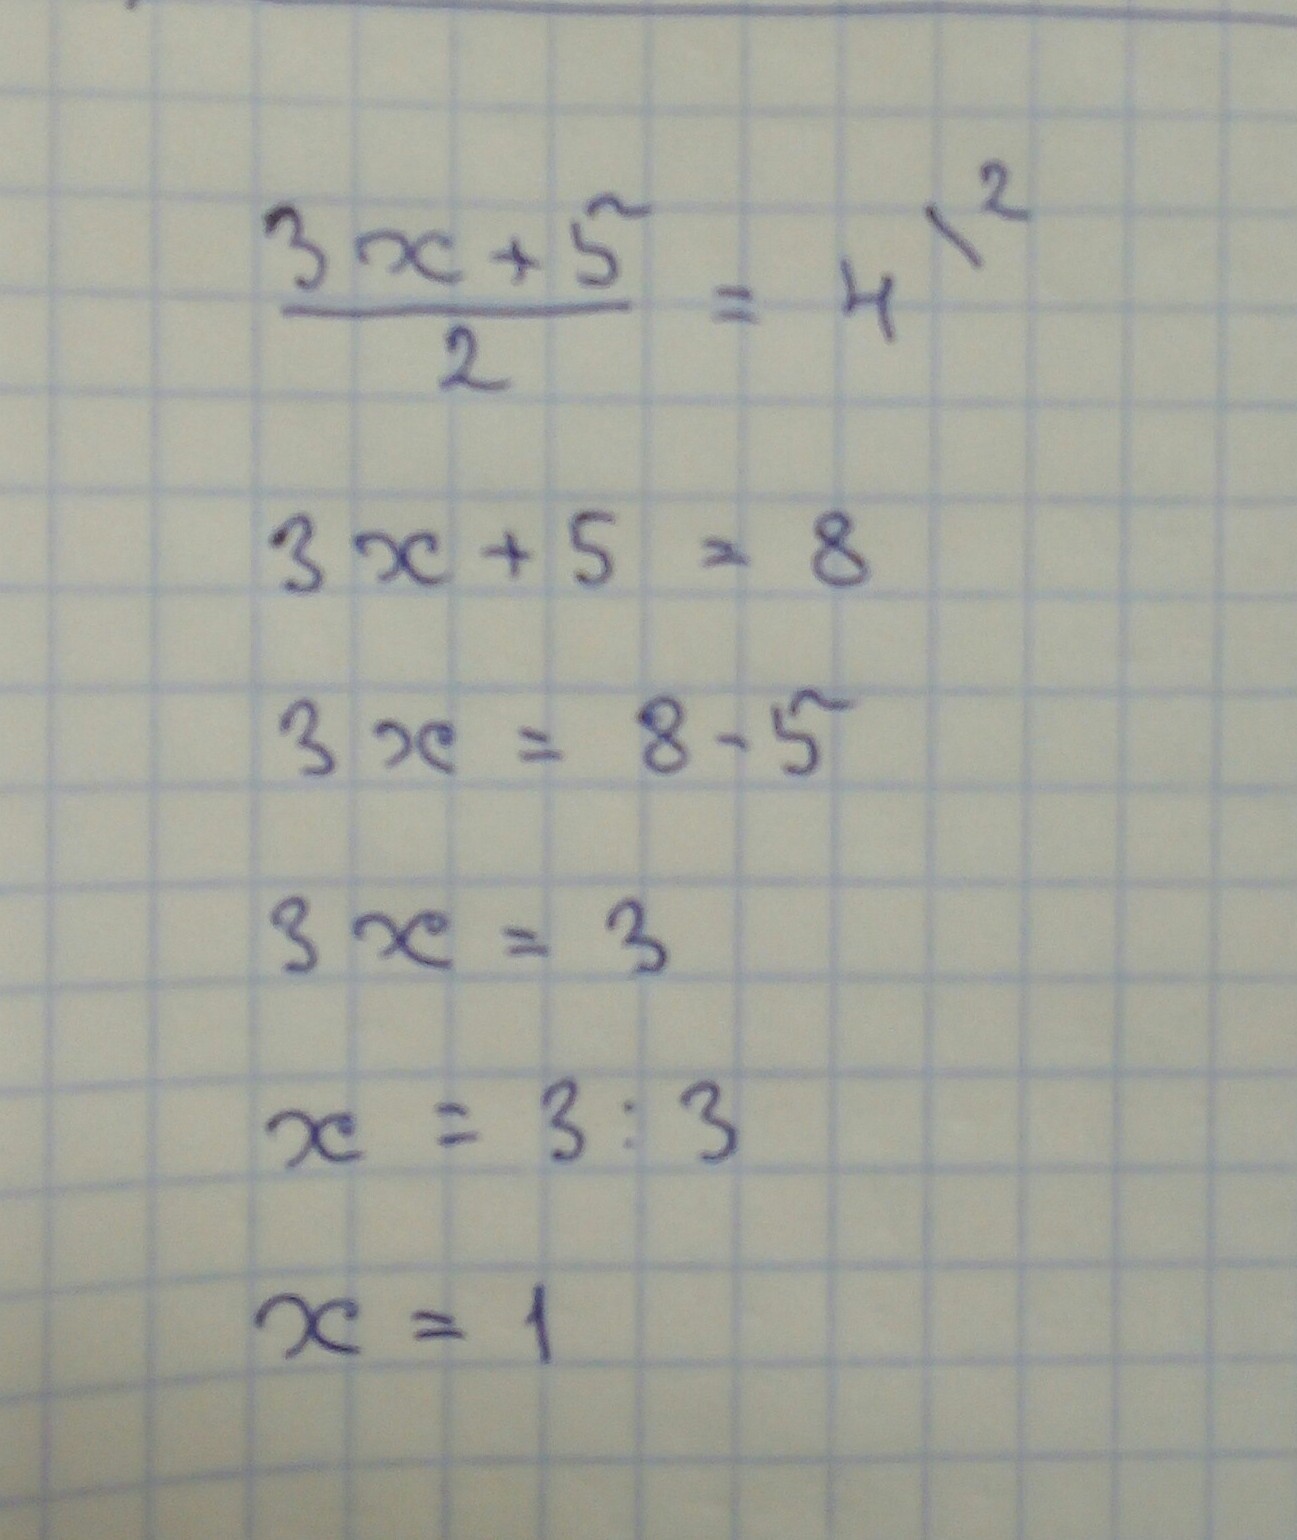 (3x + 5)/2 = 4 \2
3x + 5 = 8
3x = 8 - 5
3x = 3
x = 3 : 3
x = 1